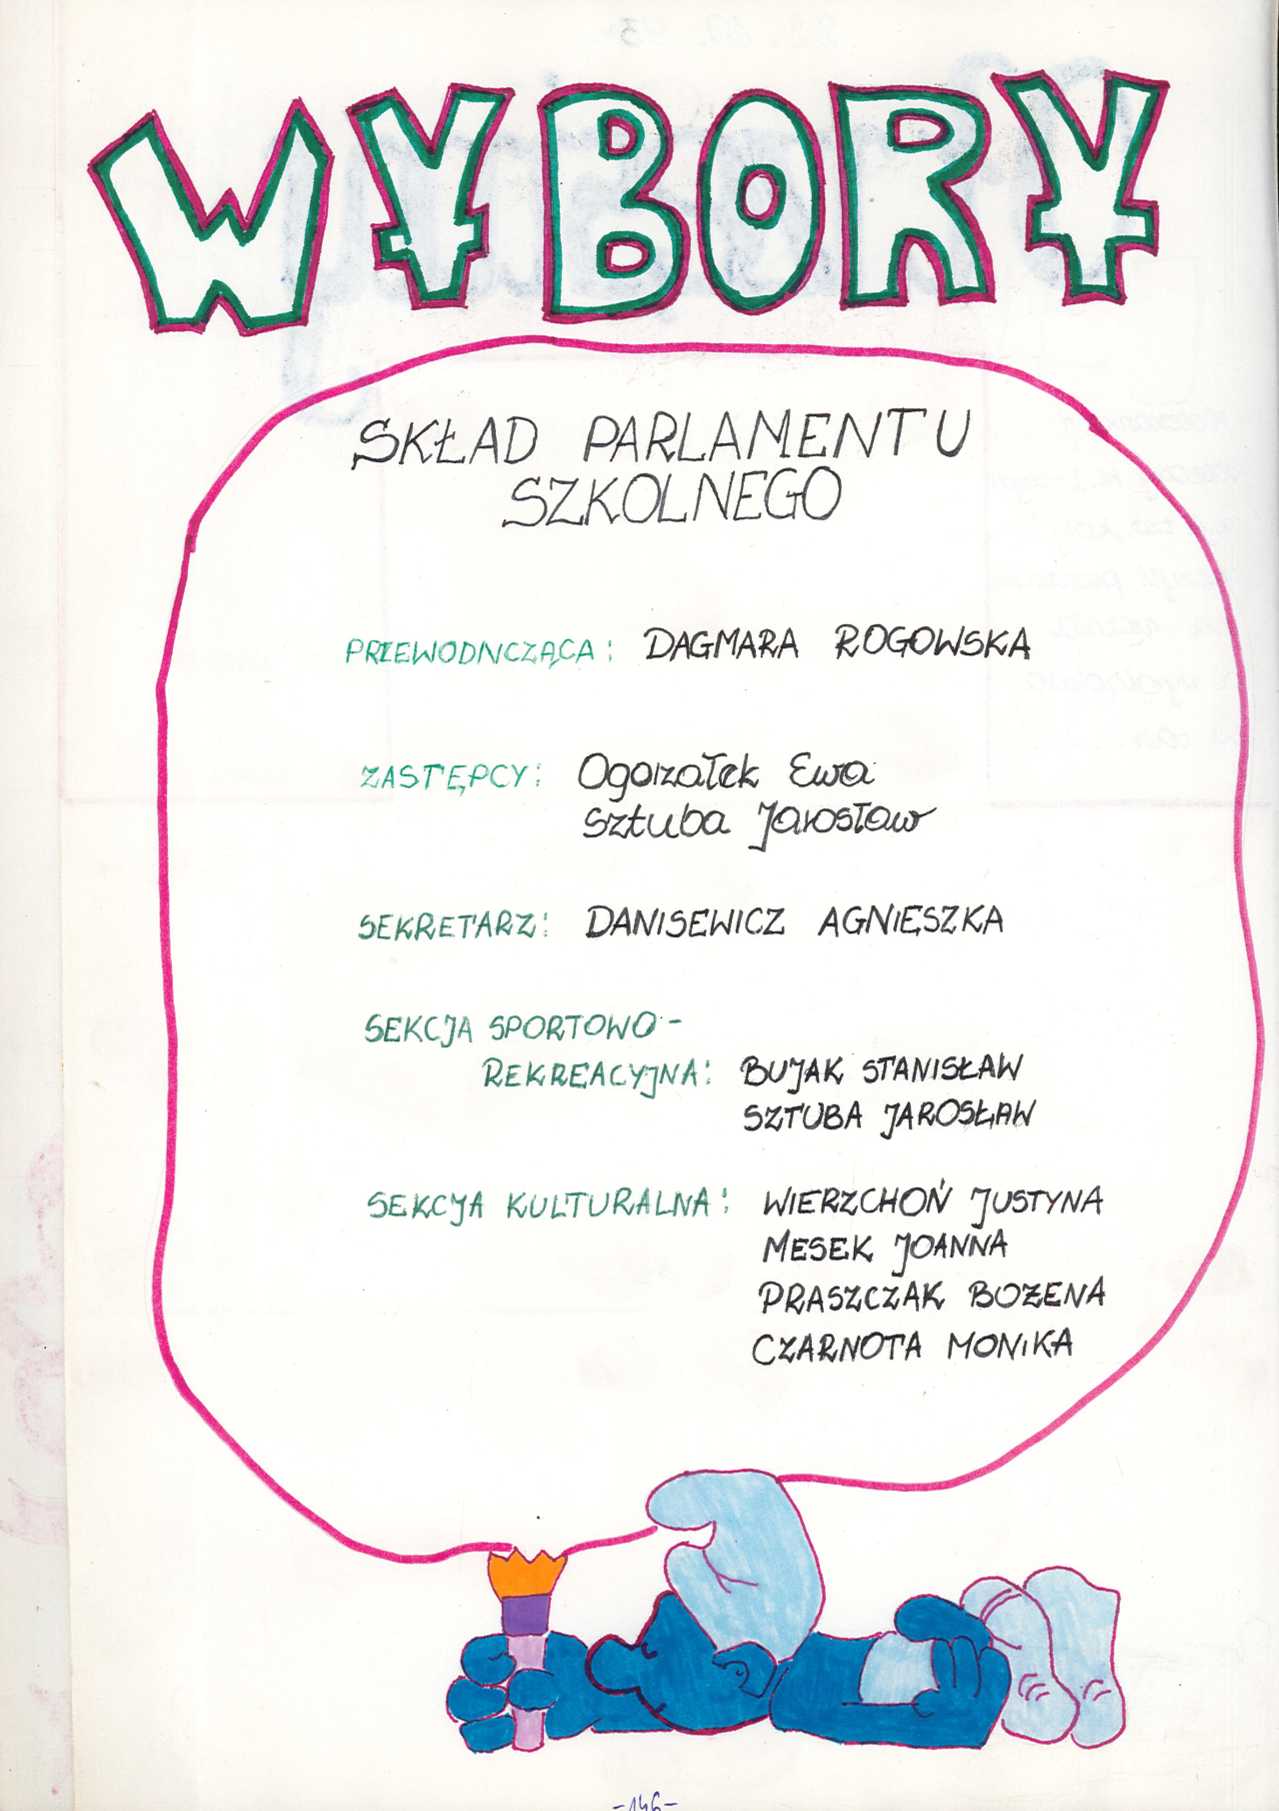 WYBORY
SKŁAD PARLAMENTU
SZKOLNEGO
PRZEWODNCZĄCA: DAGMARA ROGOWSKA
ZASTĘPCY: Ogorzałek Ewa
Sztuba Jarosław
SEKRETARZ: DANISEWICZ AGNIESZKA
SEKCJA SPORTOWO-
REKREACYJNA: BUJAK STANISŁAW
SZTUBA JAROSŁAW
SEKCJA KULTURALNA: WIERZCHOŃ JUSTYNA
MESEK JOANNA
PRASZCZAK BOŻENA
CZARNOTA MONIKA
-146-